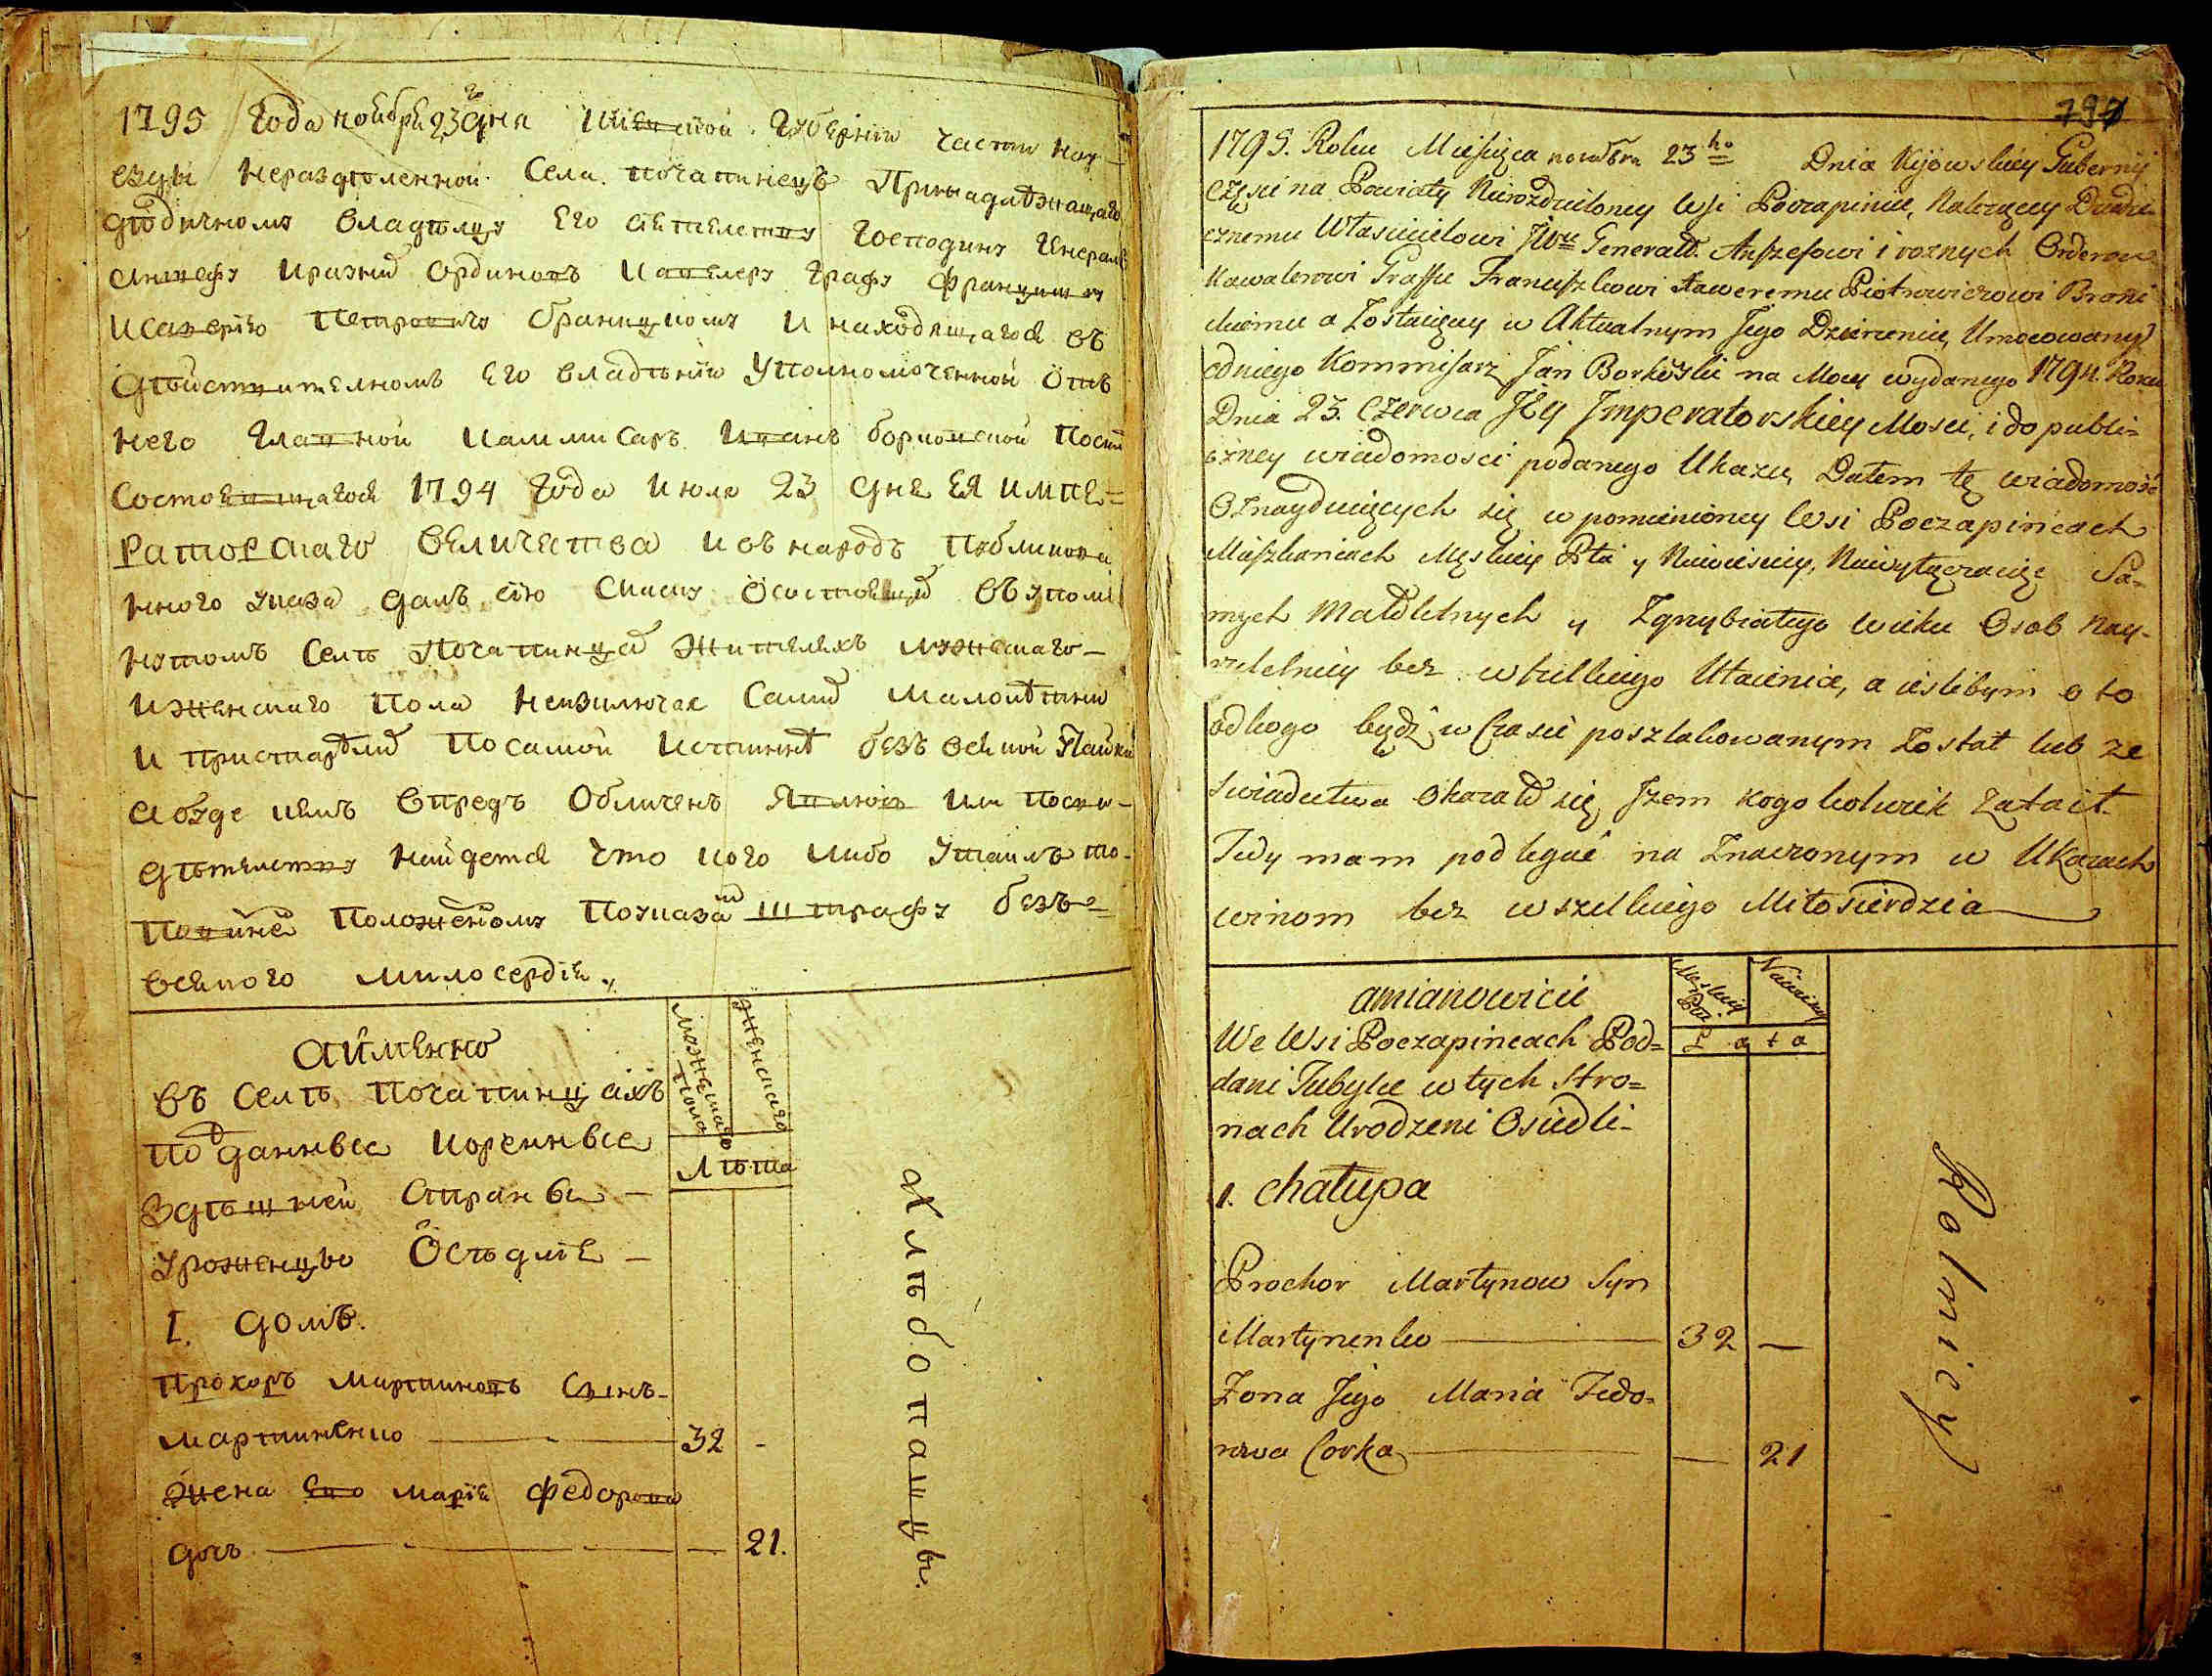 1795 года ноября 23го дня Киевской губернии части на у-
езди неразделенной села Почапинецъ принадлежащаго
дедичному владелцу его сиятелству господину генералъ
аншефу и разнихъординовъ кавалеру графу Францишку
Ксаверию Петровичу Браницкому и находящагося въ
действителномъ его владении уполномоченной отъ
него главной каммисаръ Иванъ Борковской посилѣ
состоявшагося 1794 года июля 23 дня ЕЯ ИМПЕ=
РАТОРСКАГО величества и въ народъ публикова
нного указа далъ сию скаску о состоящихъ въ упомя
нутомъ селѣ Почапинцахъ жителяхъ мужескаго
и женскаго пола неизключая самихъ малолѣтнихъ
и пристарѣлихъ по самой истиннѣ безъ всякой тайки
а буде кемъ впредъ обличенъ явлюсь или по сви-
дѣтелству найдется что кого либо утаилъ то-
повиненъ положенному по указамъ штрафу безъ=
всякого милосердия
аименно
въ селѣ Почапинцахъ
подданные коренные
здѣшней страны
уроженцы осѣдлие
мужескаго пола
женскаго
лѣта
1. домъ.
Прохоръ Мартиновъ синъ-
Мартиненко 32 -
жена ево Мария Федорова
дочь — 21.
Хлѣбопашцы.
797
1795. Roku Miesięca nowabra 23ho Dnia Kijowskiey Gubernij
Części na Powiaty Nierozdzieloney Wsi Poczapiniec, Należącey Dziedzi-
cznemu Właścicielowi JWu Generałł. Anszefowi i roznych Orderow
Kawalerowi Graffu Franciszkowi Xaweremu Piotrowiczowi Brani
ckiemu a Zostaiącey w Aktualnym Jego Dzierzeniu, Umocowany
odniego Kommisarz Jan Borkowski na Mocy wydanego 1794. Roku
Dnia 23. Czerwca Jey Imperatorskiey Mosci, i do publi=
czney wiadomosci podanego Ukazu, Dałem tę wiadomość
O znayduiących się w pomienioney Wsi Poczapińcach
Mieszkańcach Męskiey Płci y Niewiesciey, Niewyłączaiąc Sa-
mych Małoletnych y Zgrzybiałego wieku Osob nay-
rzetelniey bez wszelkiego Utaienia, a iesliby m o to
od kogo bądź w Czasie poszlakowanym został lub ze
swiadectwa okazało się, Jżem kogo kolwiek zataił.
Tedy mam podlegać na Znaczonym w Ukazach
winom bez wszelkiego Miłosierdzia
amianowicie
We Wsi Poczapińcach Pod=
dani Tubylce w tych Stro=
nach Urodzeni Osiedli-
Męskiey Płci
Niewiesciey
Lata
1. chałupa
Prochor Martynow Syn
Martynenko 32 —
Zona Jego Maria Fedo-
rowa Corka — 21
Rolnicy